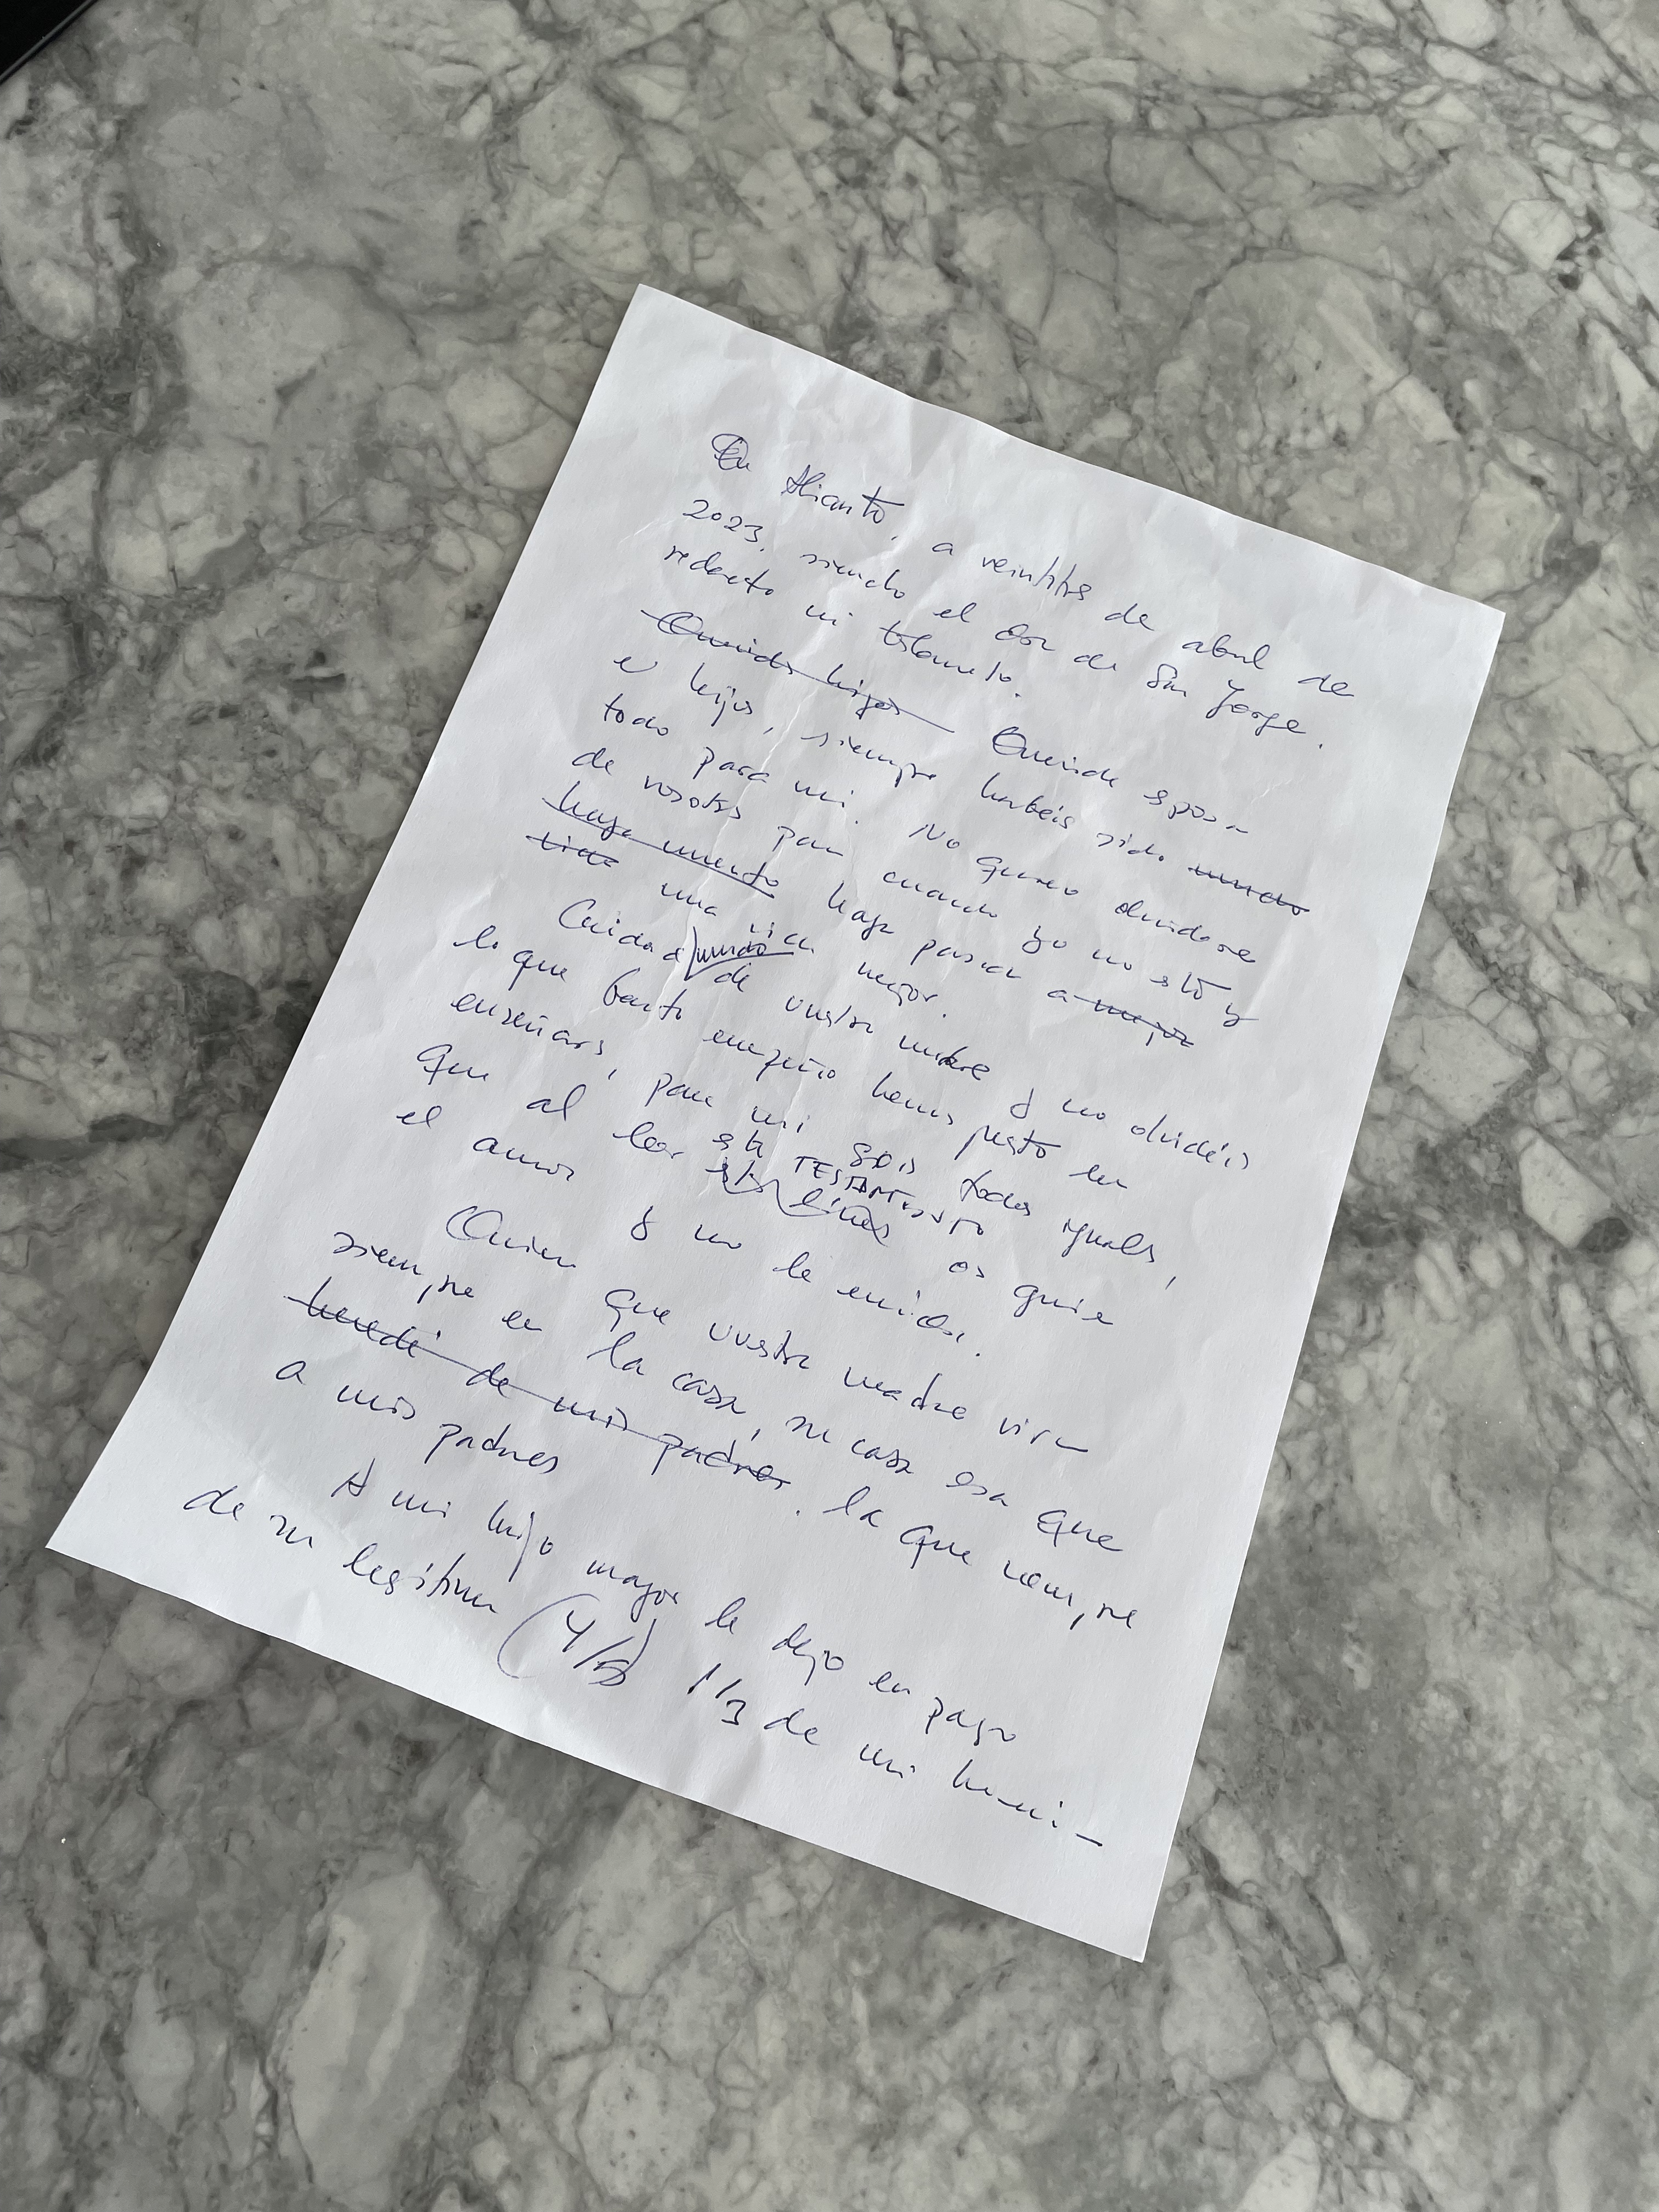 En Alicante, a veintitrés de abril de
2023, siendo el día de San Jorge.
redacto mi testamento.
Queridos hijos Querida esposa
e hijos, siempre habéis sido mucho
todo para mi. No quiero olvidarme
de vosotros para cuando yo no esté y
haya muerto haga pasar a mejor
vida una vida mejor.
Cuidad mucho de vuestra madre y no olvidéis
lo que tanto empeño hemos puesto en
enseñaros, para mi sois todos iguales,
que al leer este TESTAMENTO estas líneas os guíe
el amor y no la envidia.
Quiero que vuestra madre viva
siempre en la casa, su casa esa que
heredé de mis padres. la que compré
a mis padres
A mi hijo mayor le dejo en pago
de su legítima (4/5) 1/3 de mi